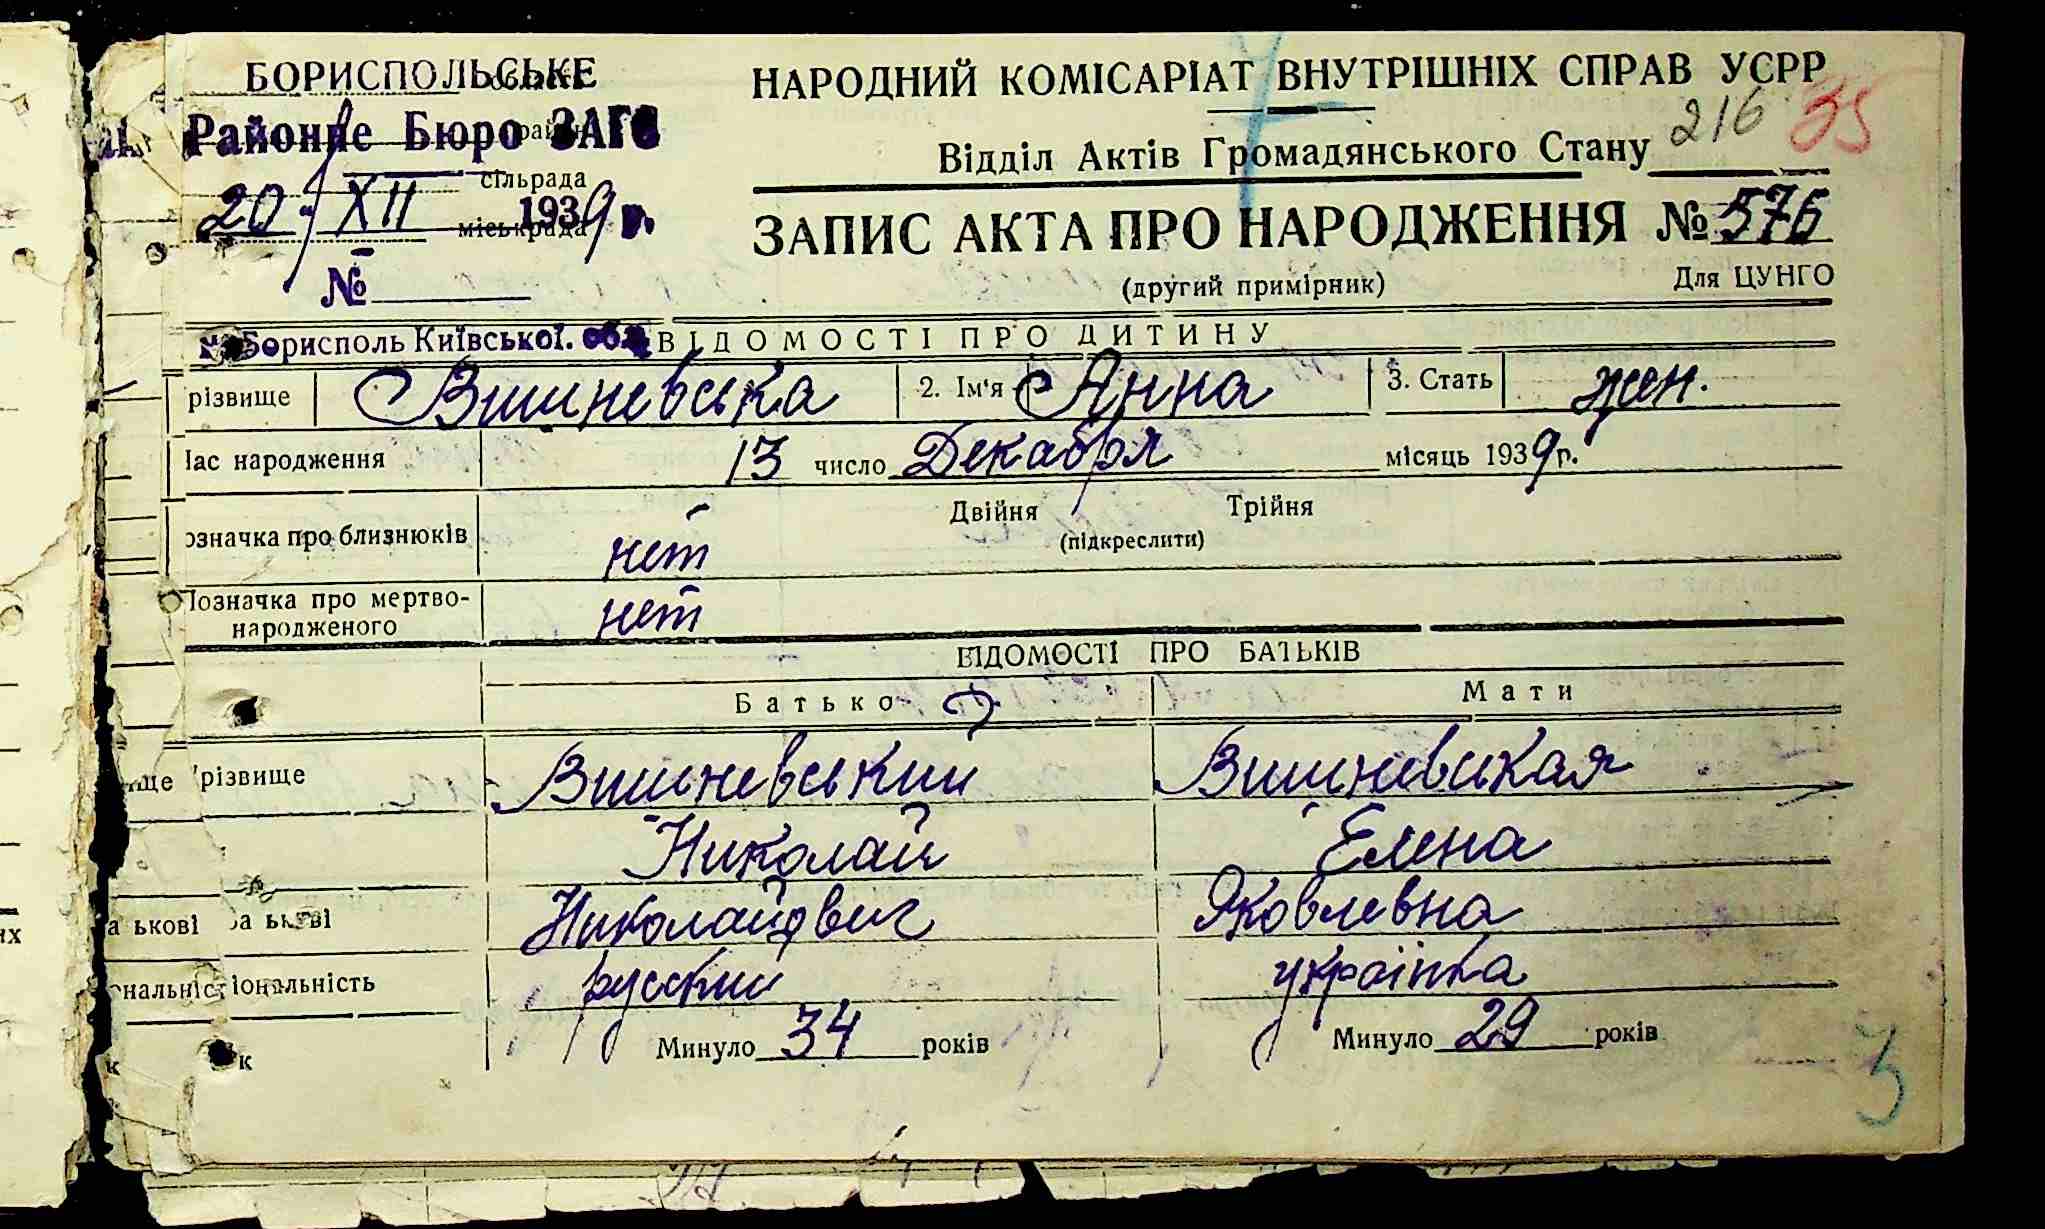 БОРИСПОЛЬСЬКЕ
Районне Бюро ЗАГС
сільрада
20/XII 1939 р.
міськрада
№
м. Борисполь Київської. обл.
НАРОДНИЙ КОМІСАРІАТ ВНУТРІШНІХ СПРАВ УСРР
216 35
Відділ Актів Громадянського Стану
ЗАПИС АКТА ПРО НАРОДЖЕННЯ № 576
(другий примірник) Для ЦУНГО
ВІДОМОСТІ ПРО ДИТИНУ
різвище Вишневська 2. Ім'я Анна 3. Стать жен.
Час народження 13 число Декабря місяць 1939 р.
означка про близнюків нет Двійня Трійня
(підкреслити)
Позначка про мертво-
народженого нет
ВІДОМОСТІ ПРО БАТЬКІВ
Батько Мати
ище різвище Вишневський Вишневская
Николай Елена
ькові Николайович Яковлевна
ональніс іональність русский українка
к к Минуло 34 років Минуло 29 років
3